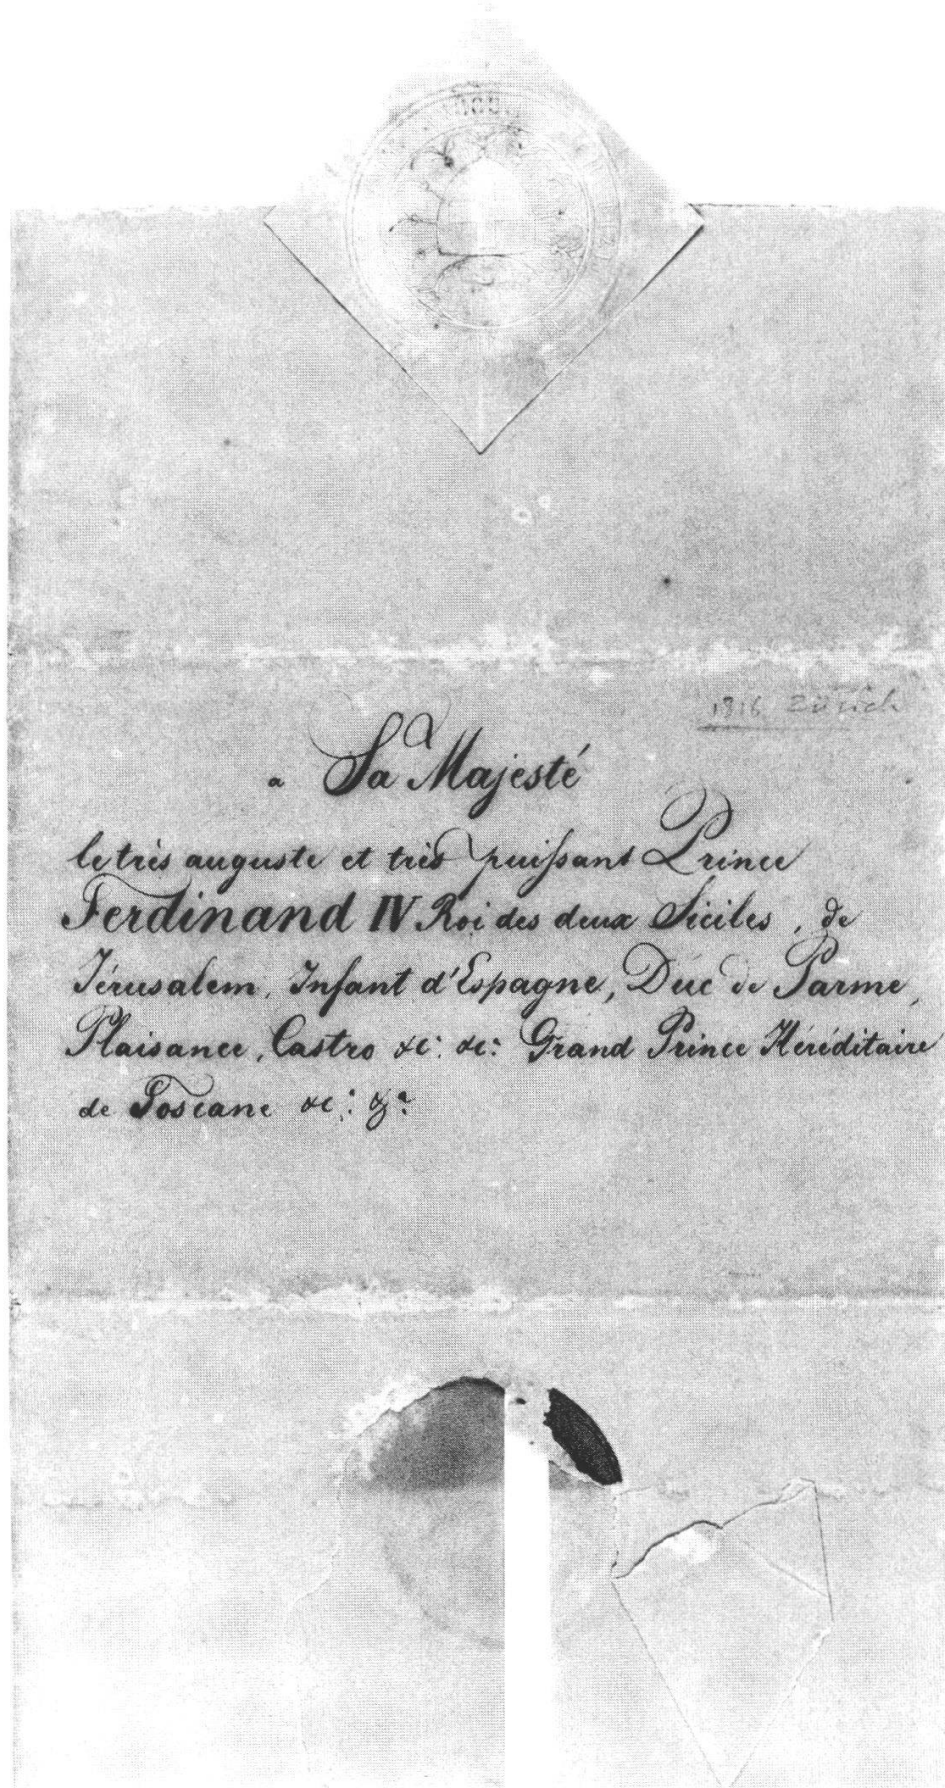 1816 Zürich
a Sa Majesté
le très auguste et très puissant Prince
Ferdinand IV Roi des deux Siciles, de
Jérusalem, Infant d'Espagne, Duc de Parme,
Plaisance, Castro &c: &c: Grand Prince Héréditaire
de Toscane &c: &c: